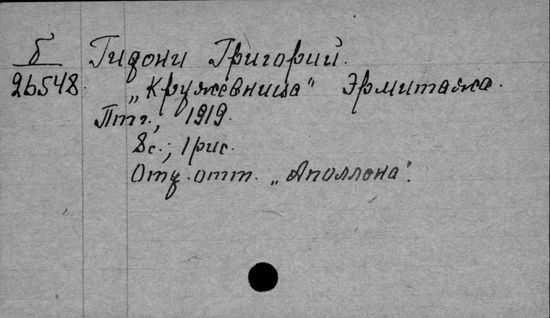 б Гидони Григорий.
26548 "Кружевница" Эрмитажа.
Птг., 1919.
8с.; 1 рис.
Отд. отт. "Аполлона".